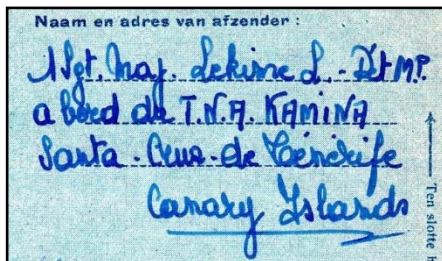 Naam en adres van afzender :
1 Sgt. Maj. Lekime L. - Dét M.P.
a bord du T.N.A. KAMINA
Santa - Cruz - de Ténérife
Canary Islands
Ten slotte